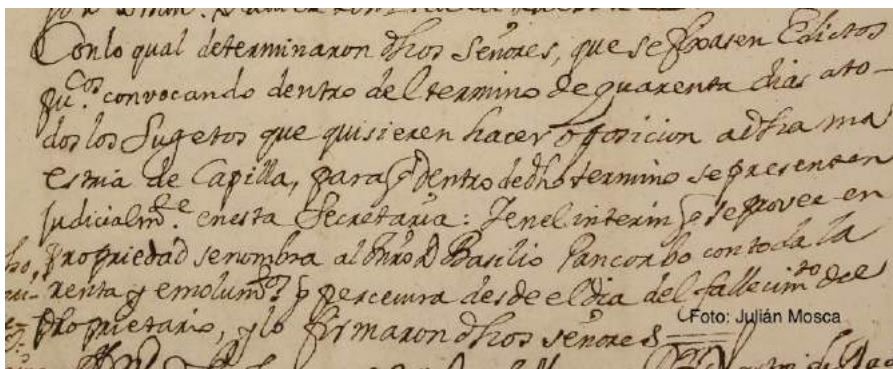 Con lo qual determinaron dhos Señores, que se fixasen Edictos
pu.cos convocando dentro del termino de quarenta dias a to-
dos los Sugetos que quisieren hacer oposicion a dha ma
estria de Capilla, para q dentro de dho termino se presenten
judicialm.te en esta Secretaria: Y en el interin q se provee en
propriedad se nombra al Mñro D Basilio Pancorbo con toda la
renta y emolum.tos q percevira desde el dia del fallecim.to del
Proprietario, y lo firmaron dhos señores
Foto: Julián Mosca